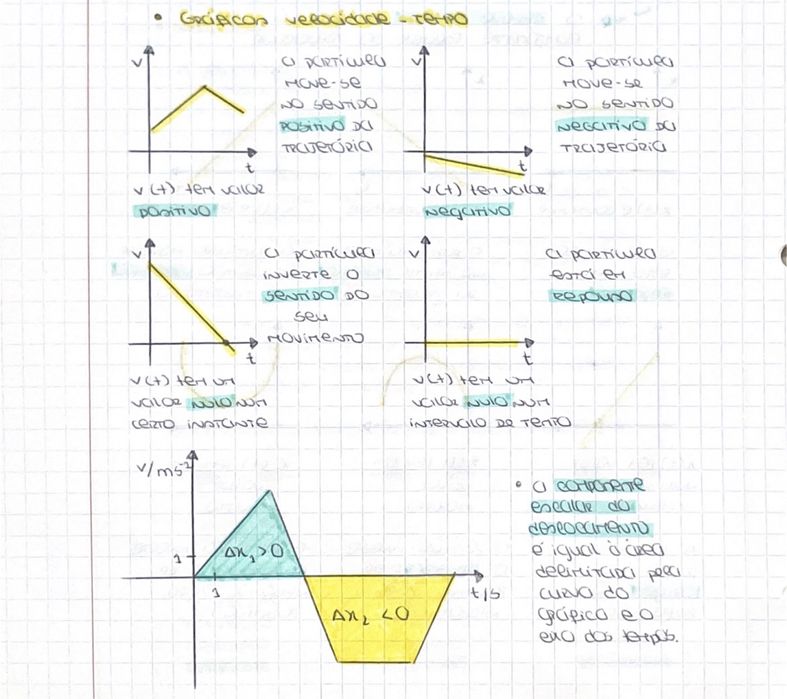 • Gráficos velocidade - tempo
v
t
A partícula
move-se
no sentido
positivo da
trajetória
v(t) tem valor
positivo
v
t
A partícula
move-se
no sentido
negativo da
trajetória
v(t) tem valor
negativo
v
t
A partícula
inverte o
sentido do
seu
movimento
v(t) tem um
valor nulo num
certo instante
v
t
A partícula
está em
repouso
v(t) tem um
valor nulo num
intervalo de tempo
v/ms⁻²
1
1
t/s
Δx₁>0
Δx₂ <0
• A componente
escalar do
deslocamento
é igual à área
delimitada pela
curva do
gráfico e o
eixo dos tempos.